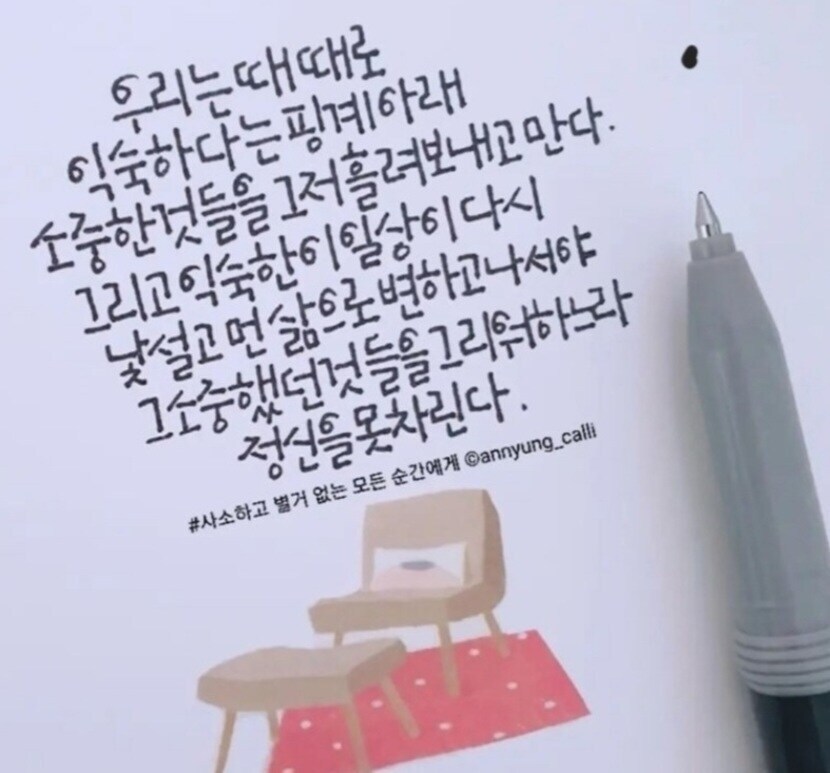 우리는 때때로
익숙하다는 핑계 아래
소중한 것들을 그저 흘려보내고 만다.
그리고 익숙한 이 일상이 다시
낯설고 먼 삶으로 변하고 나서야
그 소중했던 것들을 그리워하느라
정신을 못 차린다.
#사소하고 별거 없는 모든 순간에게 ©annyung_calli